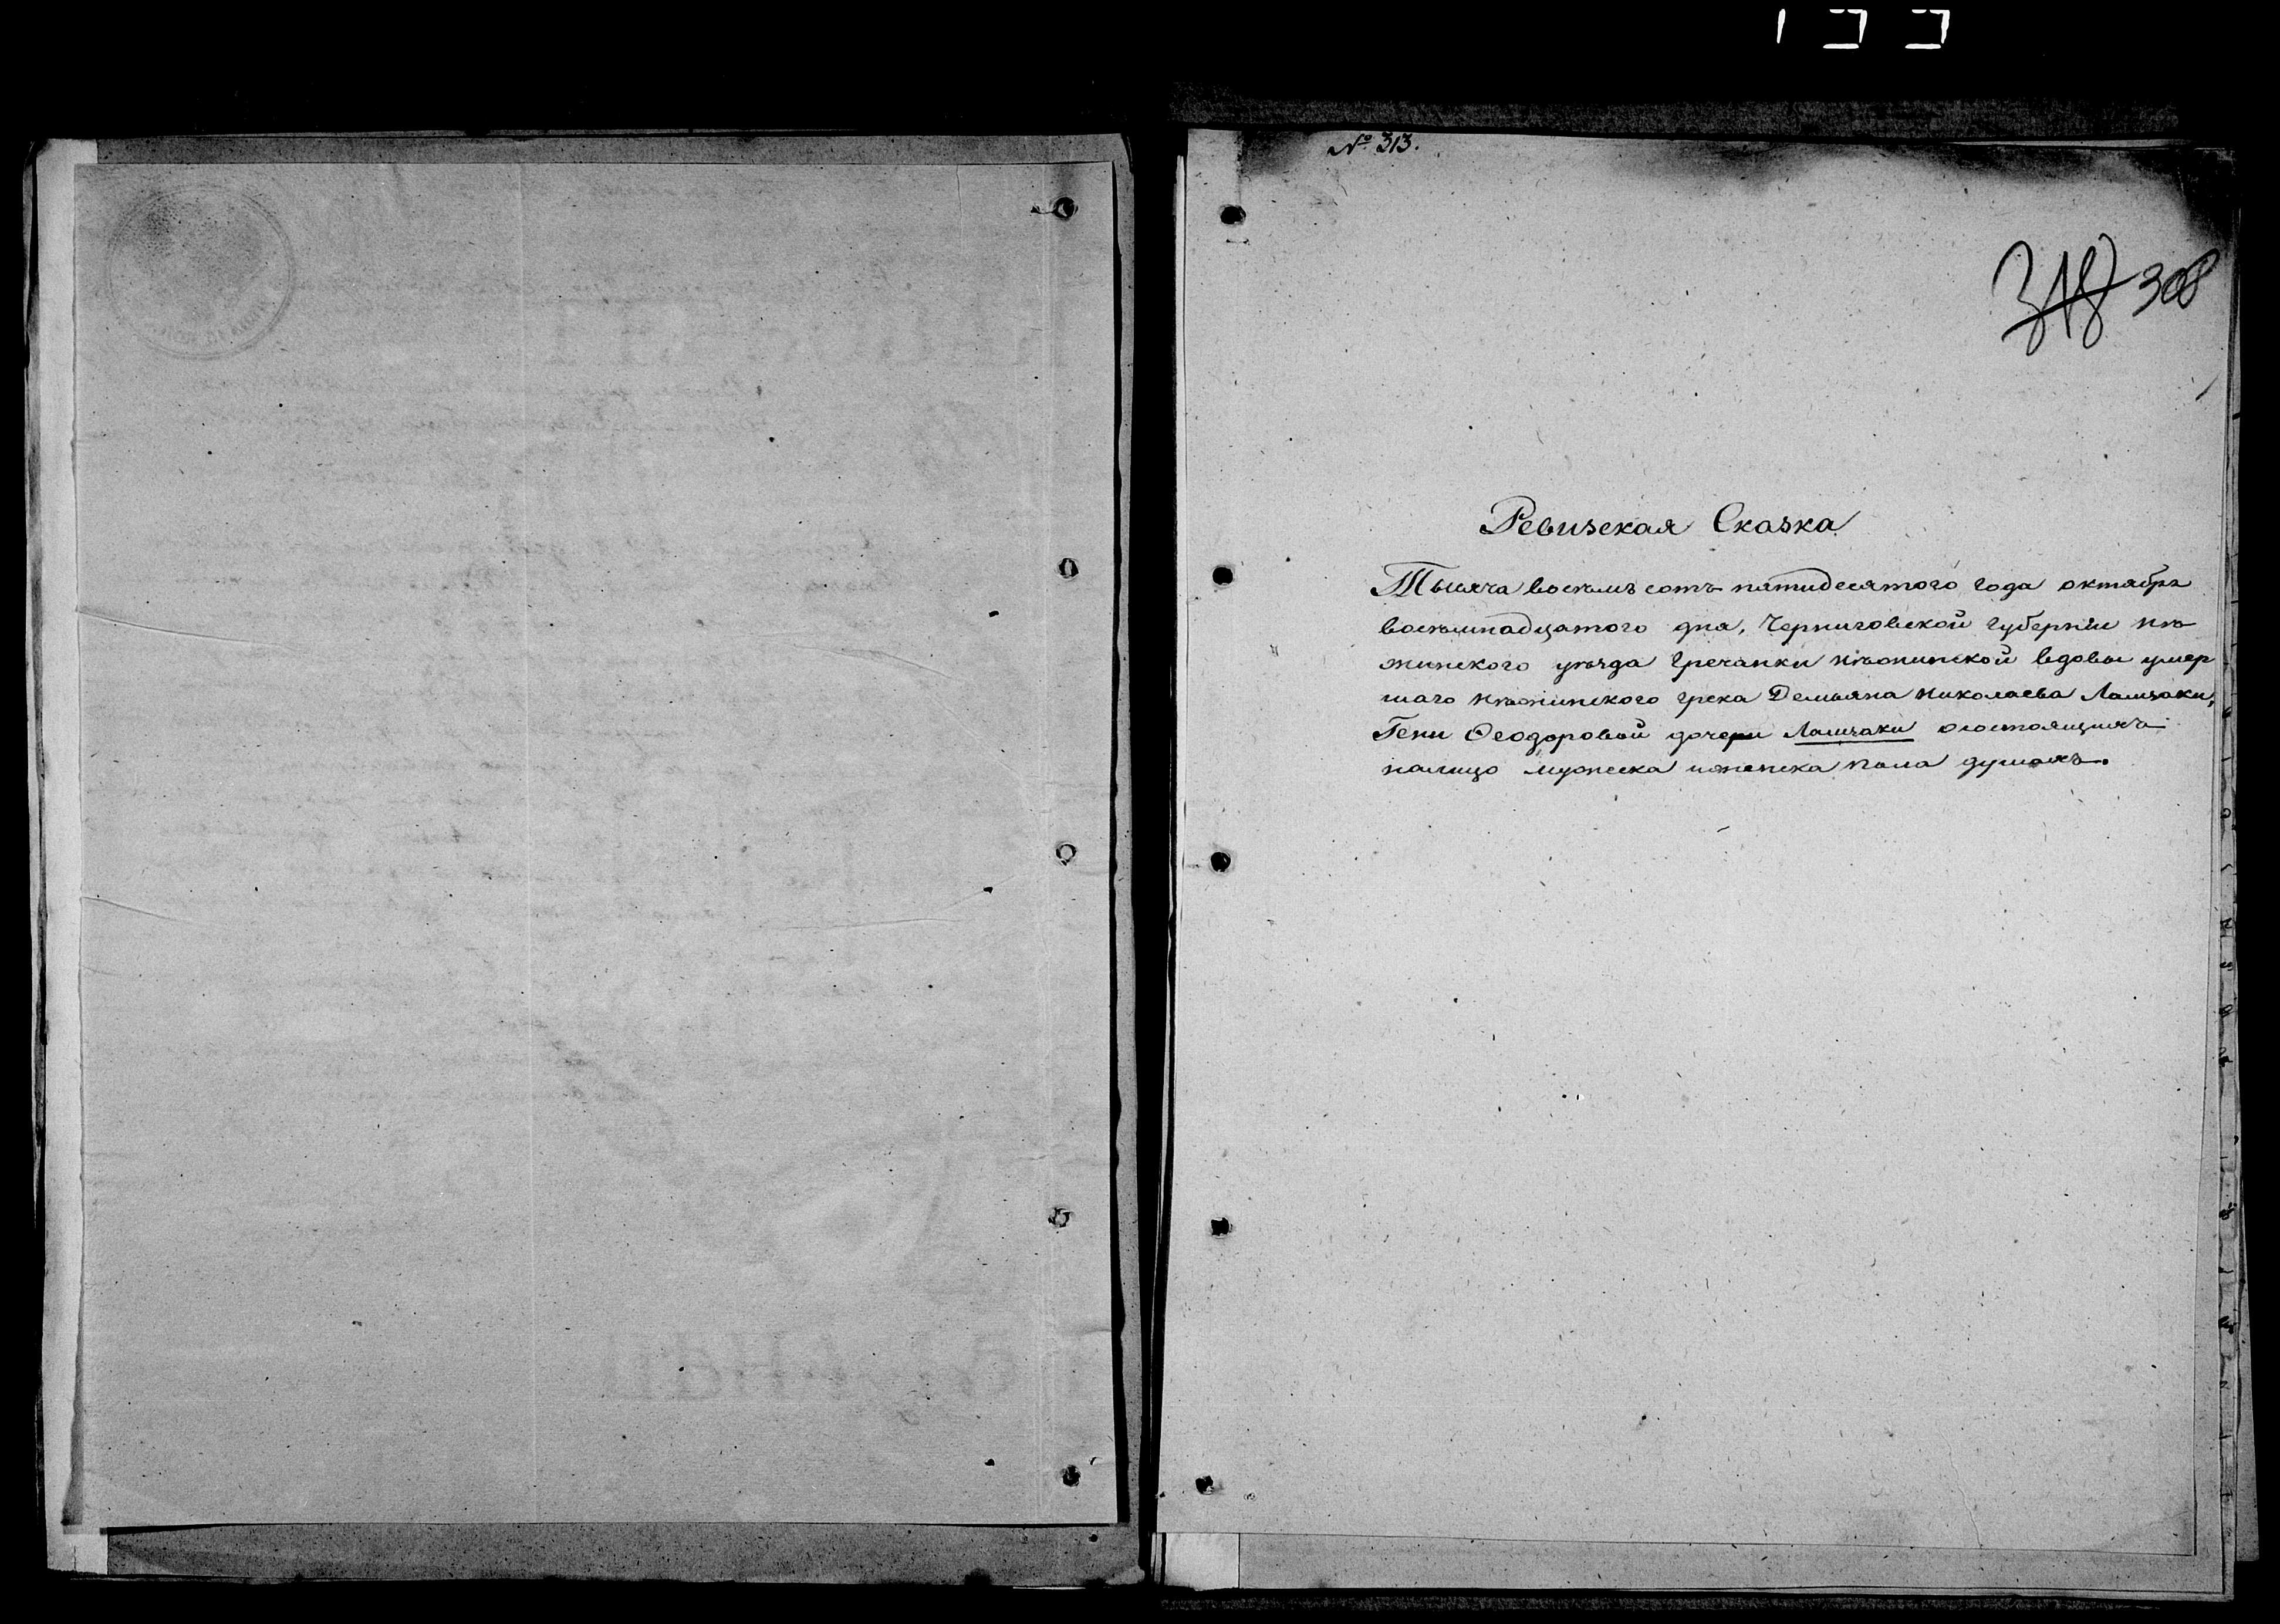 № 313.
318 308
Ревизская Сказка
Тысяча восемь сотъ пятидесятого года октября
восемнадцатого дня, Черниговской губерніи нѣ
жинского уѣзда гречанки нѣжинской вдовы умер
шаго нѣжинского грека Демьяна Николаева Ламзаки,
Гени Ѳеодоровой дочери Ламзаки осостоящихъ
налицо мужеска иженска пола душахъ.